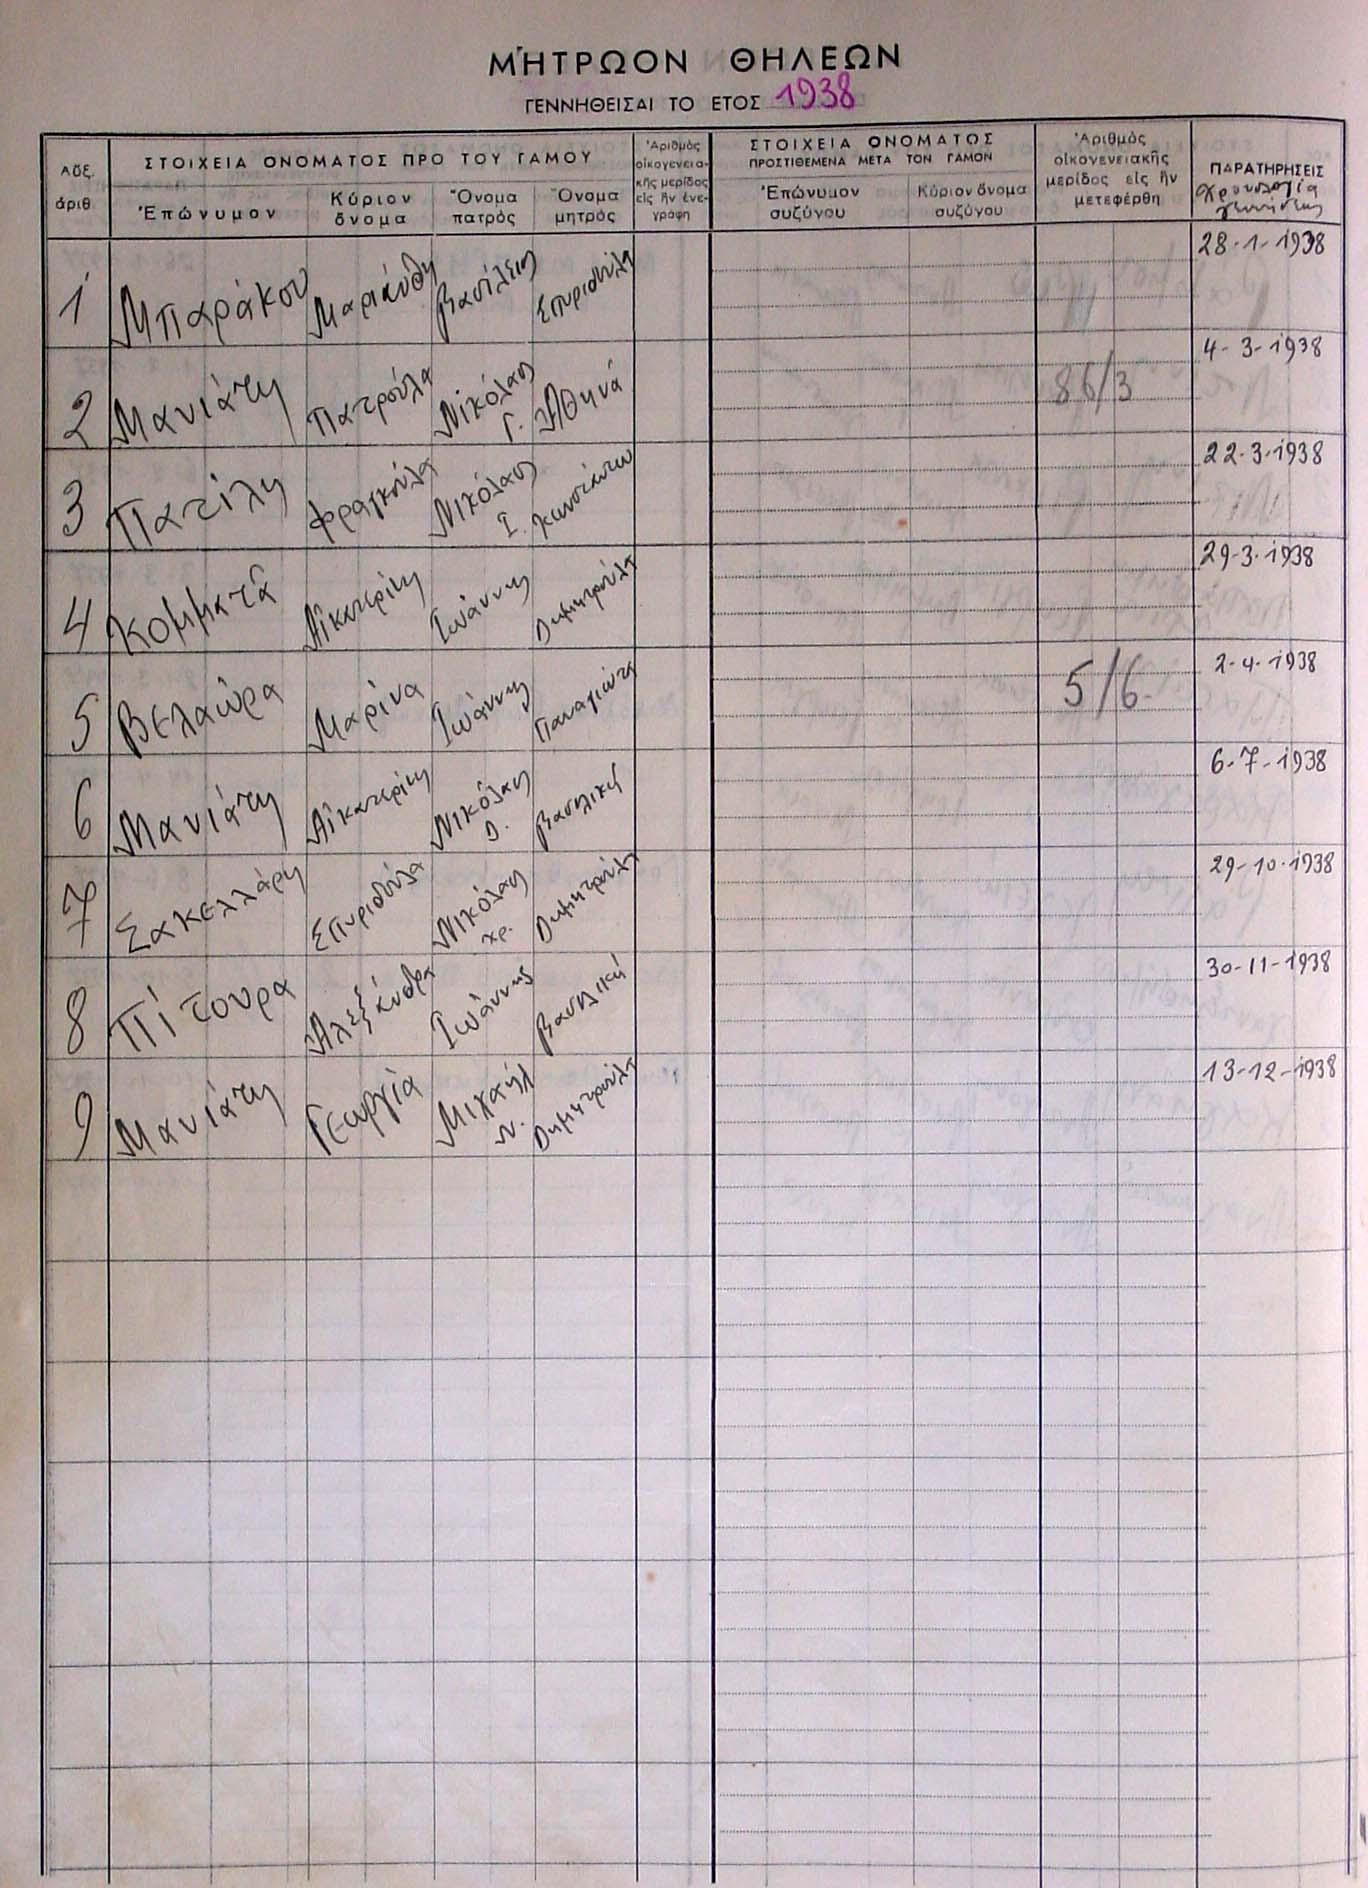 ΜΗΤΡΩΟΝ ΘΗΛΕΩΝ
ΓΕΝΝΗΘΕΙΣΑΙ ΤΟ ΕΤΟΣ 1938
Αὔξ. ἀριθ.
ΣΤΟΙΧΕΙΑ ΟΝΟΜΑΤΟΣ ΠΡΟ ΤΟΥ ΓΑΜΟΥ
Ἐπώνυμον
Κύριον ὄνομα
Ὄνομα πατρός
Ὄνομα μητρός
Ἀριθμὸς οἰκογενεια-κῆς μερίδος εἰς ἣν ἐνε-γράφη
ΣΤΟΙΧΕΙΑ ΟΝΟΜΑΤΟΣ
ΠΡΟΣΤΙΘΕΜΕΝΑ ΜΕΤΑ ΤΟΝ ΓΑΜΟΝ
Ἐπώνυμον συζύγου
Κύριον ὄνομα συζύγου
Ἀριθμὸς οἰκογενειακῆς μερίδος εἰς ἣν μετεφέρθη
ΠΑΡΑΤΗΡΗΣΕΙΣ
χρονολογία γεννήσεως
1 Μπαράκου Μαριάνθη Βασίλειος Σπυριδούλα 28-1-1938
2 Μανιάτη Πατρούλα Νικόλαος Γ. Ἀθηνά 86/3 4-3-1938
3 Πατίλη Φραγκούλα Νικόλαος Ι. Κωνστάντω 22-3-1938
4 Κομματᾶ Αἰκατερίνη Ἰωάννης Δημητρούλα 29-3-1938
5 Βελαώρα Μαρίνα Ἰωάννης Παναγιώτα 5/6 2-4-1938
6 Μανιάτη Αἰκατερίνη Νικόλαος Δ. Βασιλική 6-7-1938
7 Σακελλάρη Σπυριδούλα Νικόλαος Χρ. Δημητρούλα 29-10-1938
8 Πίτουρα Ἀλεξάνδρα Ἰωάννης Βασιλική 30-11-1938
9 Μανιάτη Γεωργία Μιχαήλ Ν. Δημητρούλα 13-12-1938